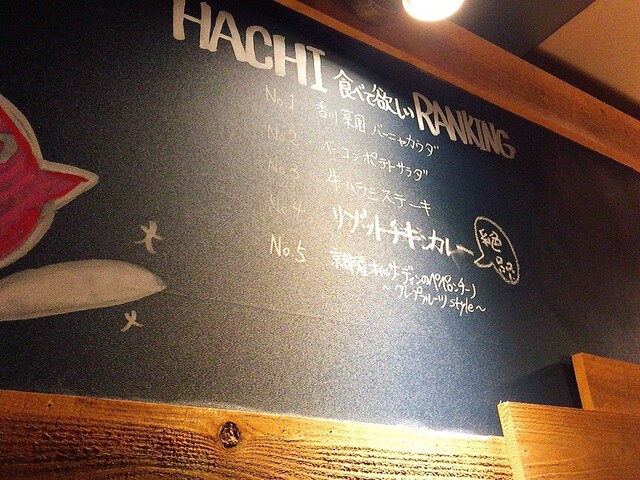 HACHI 食べて欲しい RANKING
No.1 香川菜園 バーニャカウダ
No.2 ベーコンポテトサラダ
No.3 牛ハラミステーキ
No.4 リゾットチキンカレー
絶品
No.5 京都産オイルサーディンのペペロンチーノ
～グレープフルーツ style～